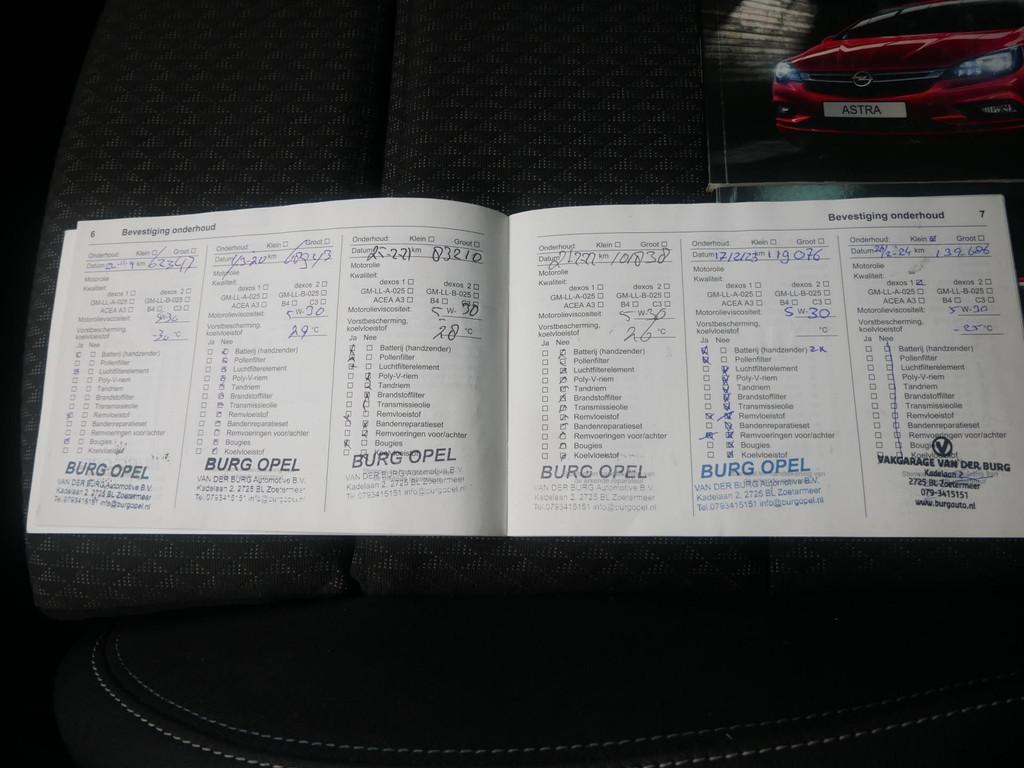 ASTRA
6 Bevestiging onderhoud
Onderhoud: Klein Groot
Datum km 62347
Motorolie
Kwaliteit:
dexos 1 dexos 2
GM-LL-A-025 GM-LL-B-025
ACEA A3 B4 C3
Motorolieviscositeit:
Vorstbescherming,
koelvloeistof °C
Ja Nee
Batterij (handzender)
Pollenfilter
Luchtfilterelement
Poly-V-riem
Tandriem
Brandstoffilter
Transmissieolie
Remvloeistof
Bandenreparatieset
Remvoeringen voor/achter
Bougies
Koelvloeistof
BURG OPEL
VAN DER BURG Automotive B.V.
Kadelaan 2, 2725 BL Zoetermeer
Tel.0793415151 info@burgopel.nl
Onderhoud: Klein Groot
Datum km
Motorolie
Kwaliteit:
dexos 1 dexos 2
GM-LL-A-025 GM-LL-B-025
ACEA A3 B4 C3
Motorolieviscositeit:
Vorstbescherming,
koelvloeistof 29 °C
Ja Nee
Batterij (handzender)
Pollenfilter
Luchtfilterelement
Poly-V-riem
Tandriem
Brandstoffilter
Transmissieolie
Remvloeistof
Bandenreparatieset
Remvoeringen voor/achter
Bougies
Koelvloeistof
BURG OPEL
VAN DER BURG Automotive B.V.
Kadelaan 2, 2725 BL Zoetermeer
Tel.0793415151 info@burgopel.nl
Onderhoud: Klein Groot
Datum km 83210
Motorolie
Kwaliteit:
dexos 1 dexos 2
GM-LL-A-025 GM-LL-B-025
ACEA A3 B4 C3
Motorolieviscositeit: 5 W-30
Vorstbescherming,
koelvloeistof 28 °C
Ja Nee
Batterij (handzender)
Pollenfilter
Luchtfilterelement
Poly-V-riem
Tandriem
Brandstoffilter
Transmissieolie
Remvloeistof
Bandenreparatieset
Remvoeringen voor/achter
Bougies
Koelvloeistof
BURG OPEL
VAN DER BURG Automotive B.V.
Kadelaan 2, 2725 BL Zoetermeer
Tel.0793415151 info@burgopel.nl
Bevestiging onderhoud 7
Onderhoud: Klein Groot
Datum km 101838
Motorolie
Kwaliteit:
dexos 1 dexos 2
GM-LL-A-025 GM-LL-B-025
ACEA A3 B4 C3
Motorolieviscositeit: 5 W-30
Vorstbescherming,
koelvloeistof 26 °C
Ja Nee
Batterij (handzender)
Pollenfilter
Luchtfilterelement
Poly-V-riem
Tandriem
Brandstoffilter
Transmissieolie
Remvloeistof
Bandenreparatieset
Remvoeringen voor/achter
Bougies
Koelvloeistof
BURG OPEL
VAN DER BURG Automotive B.V.
Kadelaan 2, 2725 BL Zoetermeer
Tel.0793415151 info@burgopel.nl
Onderhoud: Klein Groot
Datum 17/2/23 km 119076
Motorolie
Kwaliteit:
dexos 1 dexos 2
GM-LL-A-025 GM-LL-B-025
ACEA A3 B4 C3
Motorolieviscositeit: 5 W-30
Vorstbescherming,
koelvloeistof °C
Ja Nee
Batterij (handzender) 2x
Pollenfilter
Luchtfilterelement
Poly-V-riem
Tandriem
Brandstoffilter
Transmissieolie
Remvloeistof
Bandenreparatieset
Remvoeringen voor/achter
Bougies
Koelvloeistof
BURG OPEL
VAN DER BURG Automotive B.V.
Kadelaan 2, 2725 BL Zoetermeer
Tel.0793415151 info@burgopel.nl
Onderhoud: Klein Groot
Datum km 139686
Motorolie
Kwaliteit:
dexos 1 dexos 2
GM-LL-A-025 GM-LL-B-025
ACEA A3 B4 C3
Motorolieviscositeit: 5 W-30
Vorstbescherming,
koelvloeistof -25 °C
Ja Nee
Batterij (handzender)
Pollenfilter
Luchtfilterelement
Poly-V-riem
Tandriem
Brandstoffilter
Transmissieolie
Remvloeistof
Bandenreparatieset
Remvoeringen voor/achter
Bougies
VAKGARAGE VAN DER BURG
Kadelaan 2
2725 BL Zoetermeer
079-3415151
www.burgauto.nl